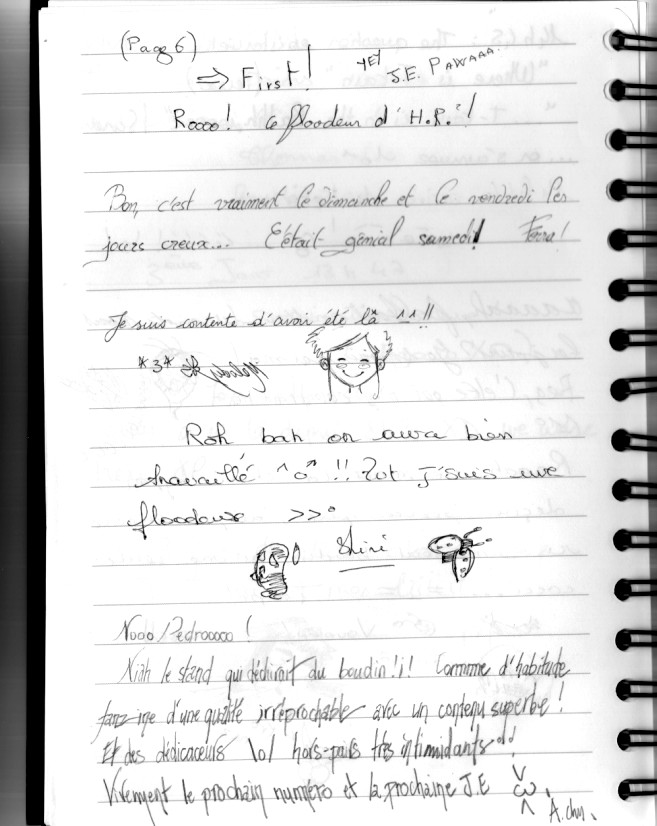 (Page 6)
⇒ First! YEY J.E. PAWAAA.
Roooo! Le floodeur d'H.R.!
Bon, c'est vraiment le dimanche et le vendredi les
jours creux... C'était génial samedi!
Je suis contente d'avoir été là ^^!!
*3* Melody
Roh bah on aura bien
travaillé ^o^ !! Zut j'suis une
floodeuse >>°
Shini
Nooo Pedrooooo!
Niah le stand qui déchirait du boudin!i! Comme d'habitude
fanzine d'une qualité irréprochable avec un contenu superbe!
Et des dédicaceurs \o/ hors-pairs très intimidants
Vivement le prochain numéro et la prochaine J.E >ω<
A.chu.